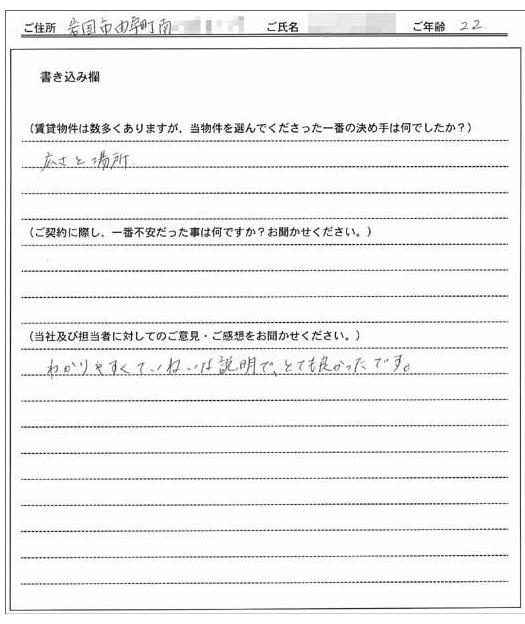 ご住所 岩国市由宇町南 ご氏名 ご年齢 22
書き込み欄
(賃貸物件は数多くありますが、当物件を選んでくださった一番の決め手は何でしたか?)
広さと場所
(ご契約に際し、一番不安だった事は何ですか?お聞かせください。)
(当社及び担当者に対してのご意見・ご感想をお聞かせください。)
わかりやすくていねいな説明で、とても良かったです。